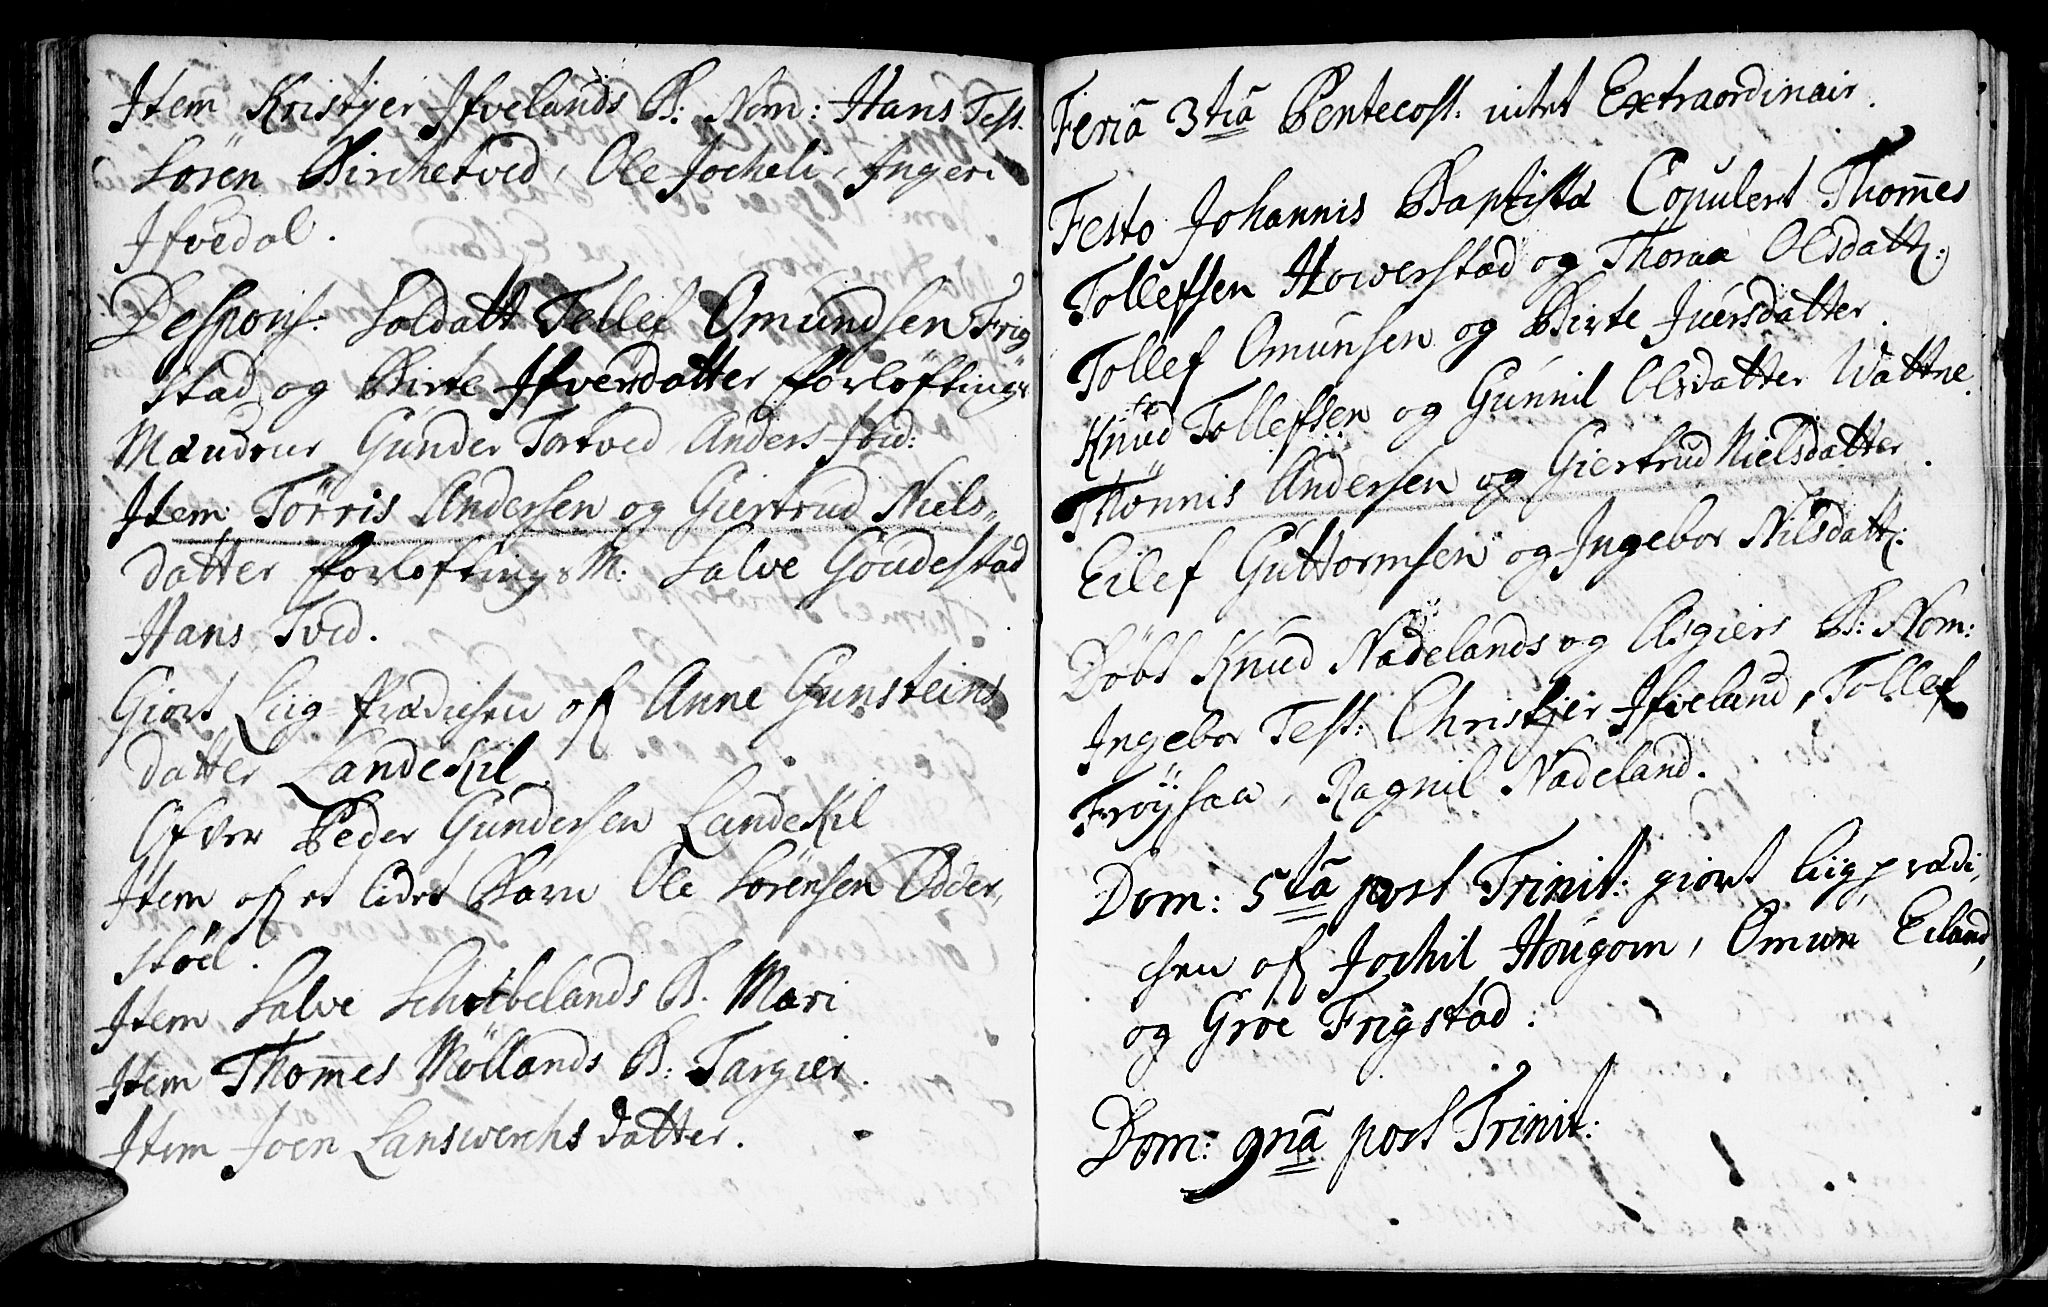 Item Kristjer Ifvelands B: Nom: Hans Test.
Sören Birchetved, Ole Jocheli, Ingeri
Ifvedal.
Despons: Soldatt Tellef Omundsen Frig
stad og Birte Ifverdatter Forlöftings
Mændene Gunder Tortved Anders ibid:
Item Törris Andersen og Giertrud Niels-
datter Forloftings M: Salve Goudestad
Hans Tved.
Giort Liig-Prædichen of Anne Gunsteins
datter Landeskil.
Ofver Peder Gundersen Landeskil
Item of et lidet Barn Ole Sörensen Odder,
stöel.
Item Salve Schibelands B. Mari
Item Thom̄es Möllands B: Targier.
Item Joen Lanswerchs datter.
Feriā 3tiā Pentecost: intet Extraordinair.
Festo Johannis Baptistæ Copulert Thom̄es
Tollefsen Howerstad og Thoraa Olsdatt:
Tollef Omunsen og Birte Juersdatter.
Knud Tollefsen og Gunnil Olsdatter Wattne.
Thönnis Andersen og Giertrud Nielsdatter.
Eilef Guttormsen og Ingebor Nilsdatt:
Döbt Knud Nadelands og Asgiers B: Nom:
Ingebor Test: Christjer Ifveland, Tollef
Fröysaa, Ragnil Nadeland.
Dom: 5tā post Trinit: giort liigprædi,
chen of Jochil Hougom, Omun Eiland,
og Groe Frigstad:
Dom: 9nā post Trinit: